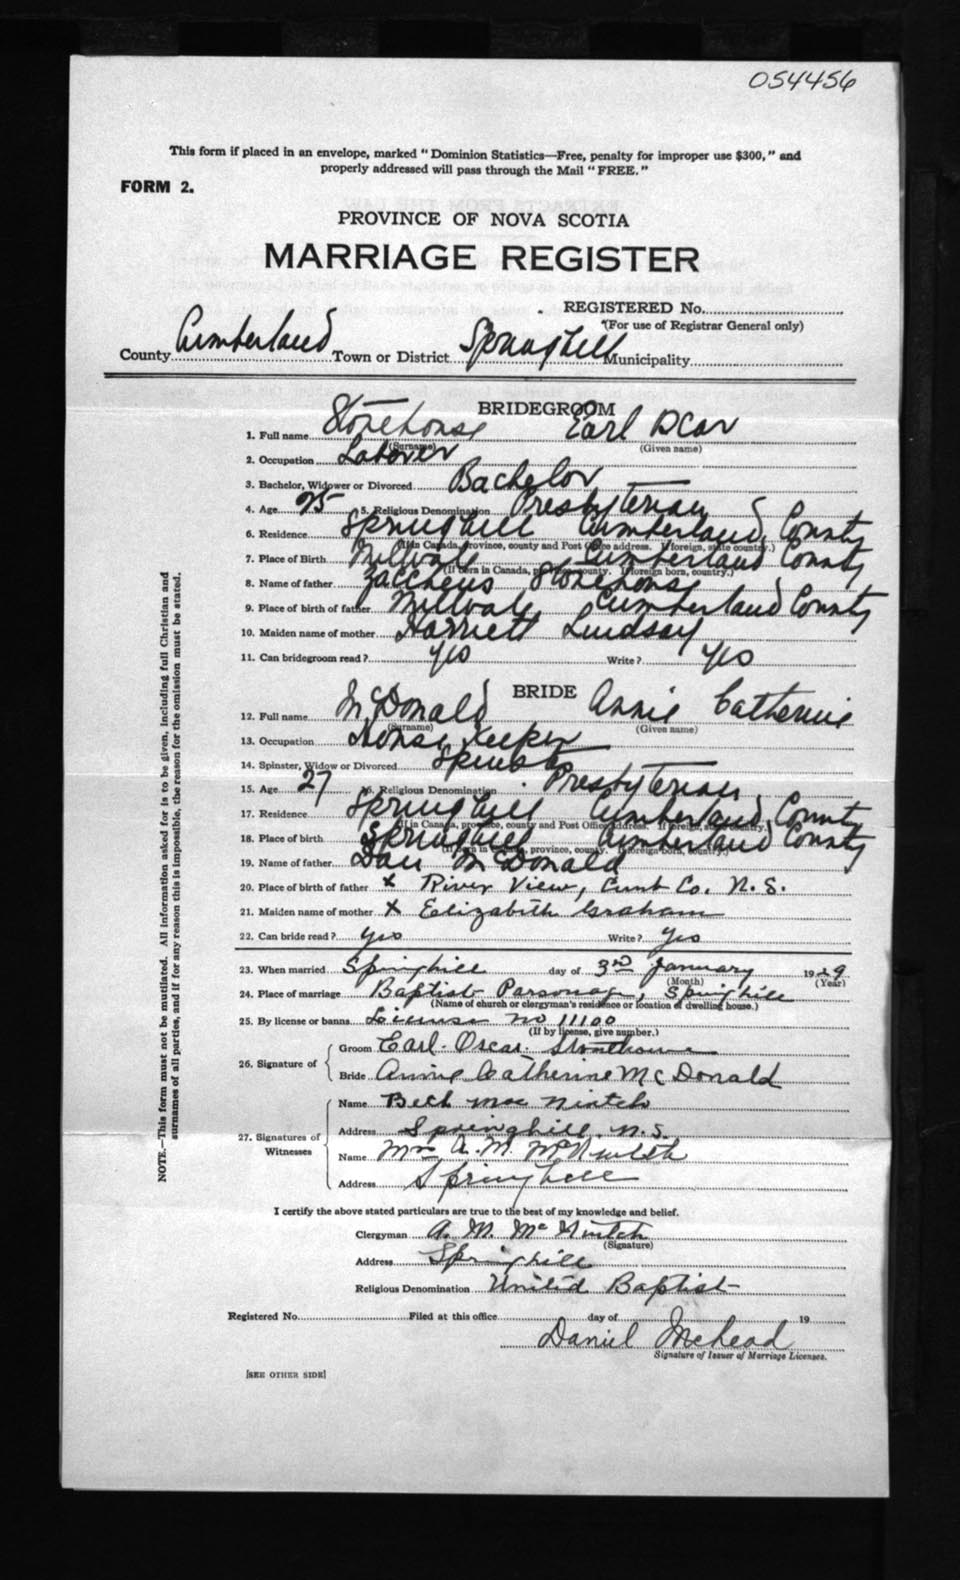 054456
This form if placed in an envelope, marked "Dominion Statistics—Free, penalty for improper use $300," and
properly addressed will pass through the Mail "FREE."
FORM 2.
PROVINCE OF NOVA SCOTIA
MARRIAGE REGISTER
REGISTERED No.
(For use of Registrar General only)
County Cumberland Town or District Springhill Municipality
BRIDEGROOM
1. Full name Stonehouse Earl Oscar
(Surname) (Given name)
2. Occupation Laborer
3. Bachelor, Widower or Divorced Bachelor
4. Age 25 5. Religious Denomination Presbyterian
6. Residence Springhill Cumberland County
(If in Canada, province, county and Post Office address. If foreign, state country.)
7. Place of Birth Millvale Cumberland County
(If born in Canada, province, county. If foreign born, country.)
8. Name of father Zaccheus Stonehouse
9. Place of birth of father Millvale Cumberland County
10. Maiden name of mother Harriett Lindsay
11. Can bridegroom read? yes Write? yes
BRIDE
12. Full name McDonald Annie Catherine
(Surname) (Given name)
13. Occupation House Keeper
14. Spinster, Widow or Divorced Spinster
15. Age 27 16. Religious Denomination Presbyterian
17. Residence Springhill Cumberland County
(If in Canada, province, county and Post Office address. If foreign, state country.)
18. Place of birth Springhill Cumberland County
(If born in Canada, province, county. If foreign born, country.)
19. Name of father Dan McDonald
20. Place of birth of father x River View, Cumb Co. N.S.
21. Maiden name of mother x Elizabeth Graham
22. Can bride read? yes Write? yes
23. When married Springhill day of 3rd January 1929
(Month) (Year)
24. Place of marriage Baptist Parsonage, Springhill
(Name of church or clergyman's residence or location of dwelling house.)
25. By license or banns License no 11100
(If by license, give number.)
26. Signature of
Groom Earl. Oscar. Stonehouse
Bride Annie Catherine McDonald
27. Signatures of Witnesses
Name Mac
Address Springhill N.S.
Name Mrs A. M. McNintch
Address Springhill
I certify the above stated particulars are true to the best of my knowledge and belief.
Clergyman A. M. McNintch
(Signature)
Address Springhill
Religious Denomination United Baptist
Registered No. Filed at this office day of 19
Daniel
Signature of Issuer of Marriage Licenses.
[SEE OTHER SIDE]
NOTE.—This form must not be mutilated. All information asked for is to be given, including full Christian and
surnames of all parties, and if for any reason this is impossible, the reason for the omission must be stated.